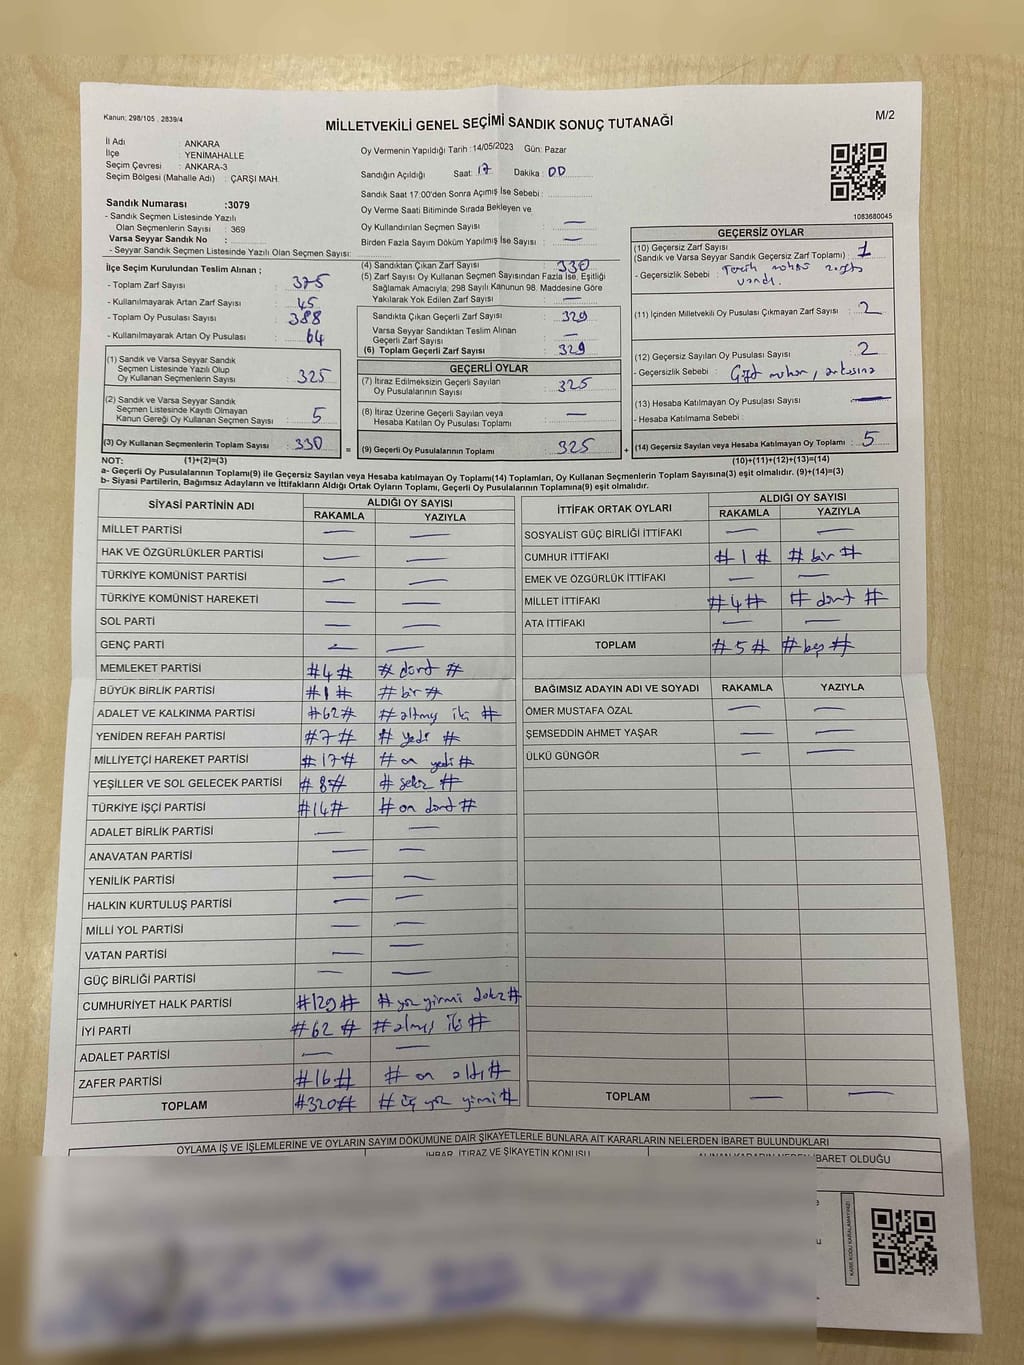 Kanun: 298/105 , 2839/4
MİLLETVEKİLİ GENEL SEÇİMİ SANDIK SONUÇ TUTANAĞI
M/2
İl Adı : ANKARA
İlçe : YENİMAHALLE
Seçim Çevresi : ANKARA-3
Seçim Bölgesi (Mahalle Adı) : ÇARŞI MAH.
Sandık Numarası :3079
- Sandık Seçmen Listesinde Yazılı
Olan Seçmenlerin Sayısı : 369
Varsa Seyyar Sandık No :
- Seyyar Sandık Seçmen Listesinde Yazılı Olan Seçmen Sayısı:
Oy Vermenin Yapıldığı Tarih :14/05/2023 Gün: Pazar
Sandığın Açıldığı Saat: 17 Dakika: 00
Sandık Saat 17:00'den Sonra Açılmış İse Sebebi :
Oy Verme Saati Bitiminde Sırada Bekleyen ve
Oy Kullandırılan Seçmen Sayısı : —
Birden Fazla Sayım Döküm Yapılmış İse Sayısı : —
1083680045
İlçe Seçim Kurulundan Teslim Alınan ;
- Toplam Zarf Sayısı : 375
- Kullanılmayarak Artan Zarf Sayısı : 45
- Toplam Oy Pusulası Sayısı : 388
- Kullanılmayarak Artan Oy Pusulası : 64
(1) Sandık ve Varsa Seyyar Sandık
Seçmen Listesinde Yazılı Olup
Oy Kullanan Seçmenlerin Sayısı : 325
(2) Sandık ve Varsa Seyyar Sandık
Seçmen Listesinde Kayıtlı Olmayan
Kanun Gereği Oy Kullanan Seçmen Sayısı : 5
(3) Oy Kullanan Seçmenlerin Toplam Sayısı : 330
(4) Sandıktan Çıkan Zarf Sayısı : 330
(5) Zarf Sayısı Oy Kullanan Seçmen Sayısından Fazla İse, Eşitliği
Sağlamak Amacıyla; 298 Sayılı Kanunun 98. Maddesine Göre
Yakılarak Yok Edilen Zarf Sayısı : —
Sandıkta Çıkan Geçerli Zarf Sayısı : 329
Varsa Seyyar Sandıktan Teslim Alınan
Geçerli Zarf Sayısı : —
(6) Toplam Geçerli Zarf Sayısı : 329
GEÇERLİ OYLAR
(7) İtiraz Edilmeksizin Geçerli Sayılan
Oy Pusulalarının Sayısı : 325
(8) İtiraz Üzerine Geçerli Sayılan veya
Hesaba Katılan Oy Pusulası Toplamı : —
(9) Geçerli Oy Pusulalarının Toplamı : 325
GEÇERSİZ OYLAR
(10) Geçersiz Zarf Sayısı
(Sandık ve Varsa Seyyar Sandık Geçersiz Zarf Toplamı) : 1
- Geçersizlik Sebebi :
(11) İçinden Milletvekili Oy Pusulası Çıkmayan Zarf Sayısı : 2
(12) Geçersiz Sayılan Oy Pusulası Sayısı : 2
- Geçersizlik Sebebi : Çift mühür, arkasına
(13) Hesaba Katılmayan Oy Pusulası Sayısı : —
- Hesaba Katılmama Sebebi :
(14) Geçersiz Sayılan veya Hesaba Katılmayan Oy Toplamı : 5
NOT: (1)+(2)=(3) (10)+(11)+(12)+(13)=(14)
a- Geçerli Oy Pusulalarının Toplamı(9) ile Geçersiz Sayılan veya Hesaba Katılmayan Oy Toplamı(14) Toplamları, Oy Kullanan Seçmenlerin Toplam Sayısına(3) eşit olmalıdır. (9)+(14)=(3)
b- Siyasi Partilerin, Bağımsız Adayların ve İttifakların Aldığı Ortak Oyların Toplamı, Geçerli Oy Pusulalarının Toplamına(9) eşit olmalıdır.
SİYASİ PARTİNİN ADI ALDIĞI OY SAYISI
RAKAMLA YAZIYLA
MİLLET PARTİSİ — —
HAK VE ÖZGÜRLÜKLER PARTİSİ — —
TÜRKİYE KOMÜNİST PARTİSİ — —
TÜRKİYE KOMÜNİST HAREKETİ — —
SOL PARTİ — —
GENÇ PARTİ — —
MEMLEKET PARTİSİ #4# # dört #
BÜYÜK BİRLİK PARTİSİ #1# # bir #
ADALET VE KALKINMA PARTİSİ #62# # altmış iki #
YENİDEN REFAH PARTİSİ #7# # yedi #
MİLLİYETÇİ HAREKET PARTİSİ #17# # on yedi #
YEŞİLLER VE SOL GELECEK PARTİSİ #8# # sekiz #
TÜRKİYE İŞÇİ PARTİSİ #14# # on dört #
ADALET BİRLİK PARTİSİ — —
ANAVATAN PARTİSİ — —
YENİLİK PARTİSİ — —
HALKIN KURTULUŞ PARTİSİ — —
MİLLİ YOL PARTİSİ — —
VATAN PARTİSİ — —
GÜÇ BİRLİĞİ PARTİSİ — —
CUMHURİYET HALK PARTİSİ #129# # yüz yirmi dokuz #
İYİ PARTİ #62# # altmış iki #
ADALET PARTİSİ — —
ZAFER PARTİSİ #16# # on altı #
TOPLAM #320# # üç yüz yirmi #
İTTİFAK ORTAK OYLARI ALDIĞI OY SAYISI
RAKAMLA YAZIYLA
SOSYALİST GÜÇ BİRLİĞİ İTTİFAKI — —
CUMHUR İTTİFAKI # 1 # # bir #
EMEK VE ÖZGÜRLÜK İTTİFAKI — —
MİLLET İTTİFAKI #4# # dört #
ATA İTTİFAKI — —
TOPLAM # 5 # # beş #
BAĞIMSIZ ADAYIN ADI VE SOYADI RAKAMLA YAZIYLA
ÖMER MUSTAFA ÖZAL — —
ŞEMSEDDİN AHMET YAŞAR — —
ÜLKÜ GÜNGÖR — —
TOPLAM — —
OYLAMA İŞ VE İŞLEMLERİNE VE OYLARIN SAYIM DÖKÜMÜNE DAİR ŞİKAYETLERLE BUNLARA AİT KARARLARIN NELERDEN İBARET BULUNDUKLARI
İHBAR, İTİRAZ VE ŞİKAYETİN KONUSU
ALINAN KARARIN NEDEN İBARET OLDUĞU
KARE KODU KARALAMAYINIZ!